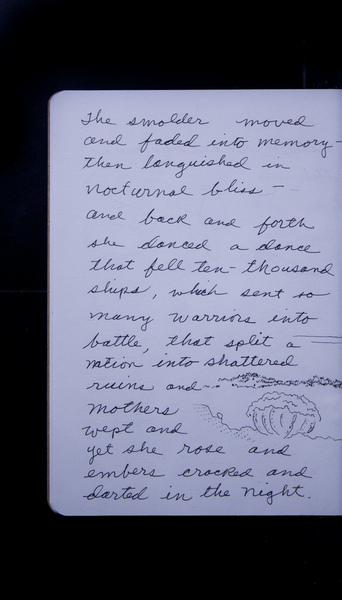 The smolder moved
and faded into memory-
then languished in
nocturnal bliss -
and back and forth
she danced a dance
that fell ten-thousand
ships, which sent so
many warriors into
battle, that split a
nation into shattered
ruins and
mothers
wept and
yet she rose and
embers cracked and
darted in the night.